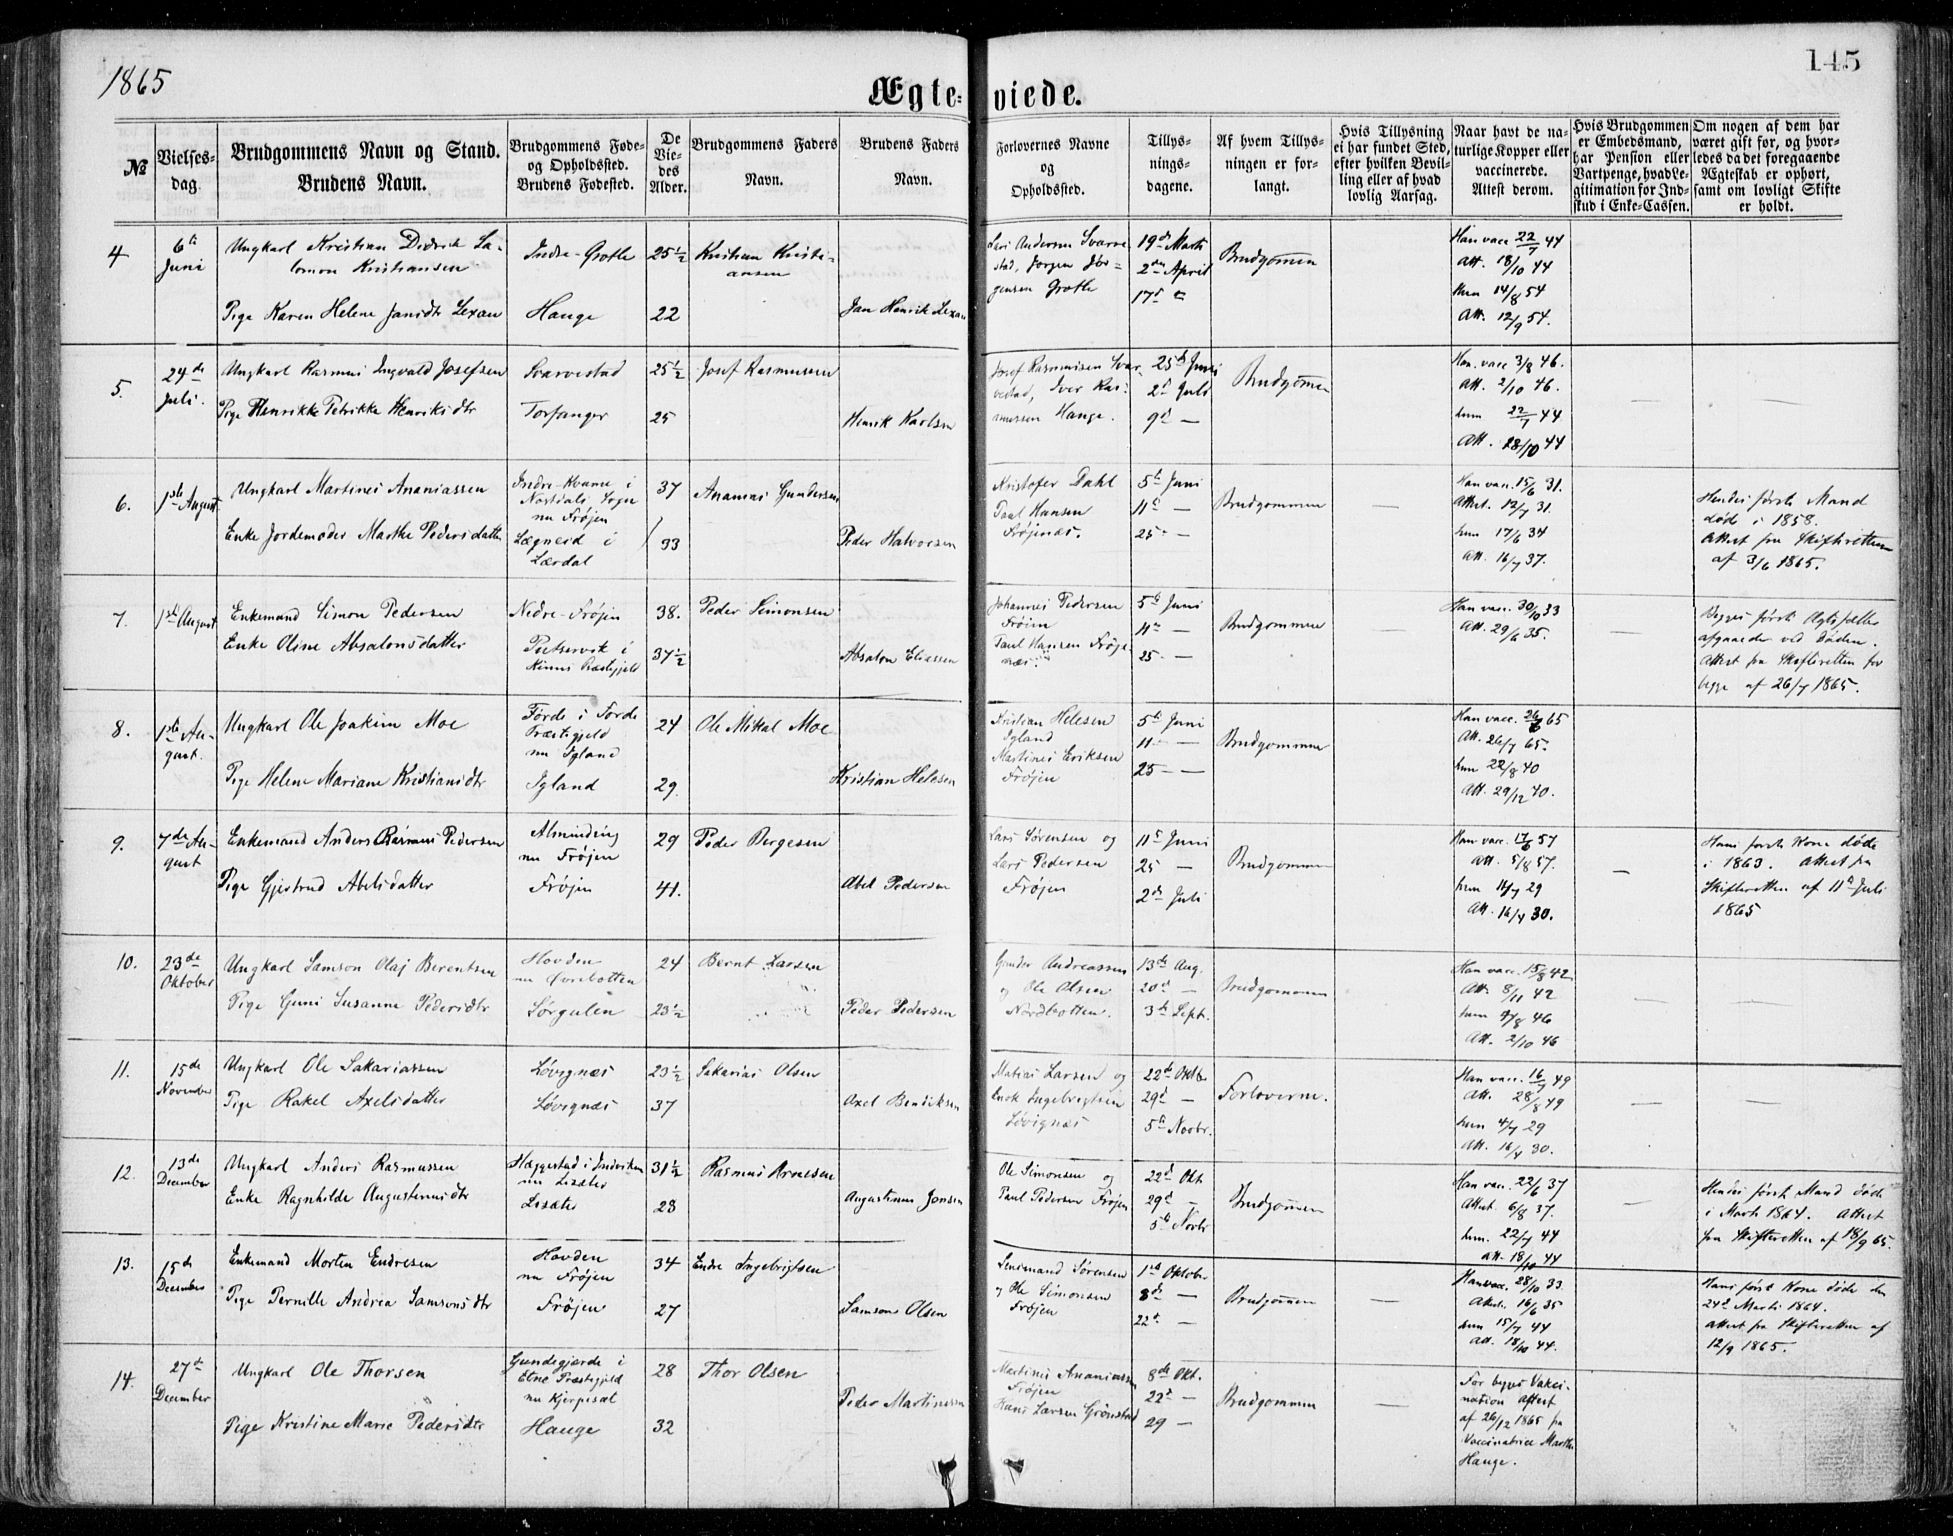 1865
145
Ægteviede.
№
Vielsesdag.
Brudgommens Navn og Stand.
Brudens Navn.
Brudgommens Føde-
og Opholdssted.
Brudens Fødested.
De
Vie-
des
Alder.
Brudgommens Faders
Navn.
Brudens Faders
Navn.
Forlovernes Navne
og
Opholdssted.
Tillys-
nings-
dagene.
Af hvem Tillys-
ningen er for-
langt.
Hvis Tillysning
ei har fundet Sted,
efter hvilken Bevil-
ling eller af hvad
lovlig Aarsag.
Naar havt de na-
turlige Kopper eller
vaccinerede.
Attest derom.
Hvis Brudgommen
er Embedsmand,
har Pension eller
Vartpenge, hvad Le-
gitimation for Ind-
skud i Enke-Cassen.
Om nogen af dem har
været gift før, og hvor-
ledes da det foregaaende
Ægteskab er ophørt,
samt om lovligt Skifte
er holdt.
4
6te
Juni
Ungkarl Kristian Didrik Sa-
lomon Kristiansen
Indre-Grotle
25 1/2
Kristian Kristi-
ansen
Pige Karen Helene Jansdtr Lexau
Hauge
22
Jan Henrik Lexau
Lars Andersen Svarve-
stad, Jørgen Jør-
gensen Grotle
19de Marts
2den April
17d "
Brudgommen
Han vacc 22/7 44
Att. 18/10 44
Hun 14/8 54
Att. 12/9 54.
5.
24de
Juli.
Ungkarl Rasmus Ingvald Josefsen
Svarvestad
25 1/2
Josef Rasmussen
Pige Henrikke Petrikke Henriksdtr
Torfanger
25
Henrik Karlsen
Josef Rasmussen Svar-
vestad, Iver Ras-
mussen Hauge.
25de Juni
2d Juli
9d —
Brudgommen
Han vacc 3/8 46.
Att. 2/10 46.
hun 22/7 44
Att. 28/10 44
6.
1ste August
Ungkarl Martines Ananiassen
Indre-Kvame i
Nordals Sogn
nu Frøjen
37
Ananias Gundersen
Enke Jordemoder Marthe Pedersdatter
Lægreid i
Lærdal
33
Peder Halvorsen
Kristofer Dahl
Paul Hansen
Frøjenæs.
5te Juni
11te —
25 —
Brudgommen
Han vacc. 15/6 31.
Attest. 12/7 31.
hun 17/6 34
Att. 16/7 37.
Hendes første Mand
døde i 1858.
Attest fra Skifteretten
af 3/6 1865.
7.
1ste August
Enkemand Simon Pedersen
Nedre-Frøjen
38.
Peder Simonsen
Enke Oline Absalonsdatter
i
Kinns Præstegjeld
37 1/2
Absalon Eliassen
Johannes Pedersen
Frøien
Paul Hansen Frøje-
næs.
5te Juni
11te —
25 —
Brudgommen
Han vacc. 30/10 33
Att. 29/6 35.
Begges første Ægtefælle
afgaaede ved Døden.
Attest fra Skifteretten for
begge af 26/7 1865.
8.
1ste Au-
gust.
Ungkarl Ole Joakim Moe
Førde i Førde
Præstegjeld
nu Igland
24
Ole Mikkal Moe
Pige Helene Mariane Kristiansdtr
Igland
29.
Kristian Helesen
Kristian Helesen
Igland
Martines Eriksen
Frøjen
5te Juni
11 —
25 —
Brudgommen
Han vacc. 26/6 65
Att. 26/7 65.
hun 22/8 40
Att. 29/12 40.
9.
7de Au-
gust
Enkemand Anders Rasmus Pedersen
Almindring
nu Frøjen
29
Peder Børgesen
Pige Gjertrud Abelsdatter
Frøjen
41.
Abel Pedersen
Lars Sørensen og
Lars Pedersen
Frøjen
11te Juni
25 —
2den Juli
Brudgommen
Han vacc. 17/6 57
Att. 5/8 57.
hun 16/7 29
Att. 16/4 30.
Hans første Kone døde
i 1863. Attest fra
Skifteretten af 11te Juli
1865
10.
23de
Oktober
Ungkarl Samson Olaj Berentsen
Hovden
nu
24
Bernt Larsen
Pige Guni Susanne Pedersdtr
Sørgulen
23 1/2
Peder Pedersen
Gunder Andreassen
og Ole Olsen
Nordbotten.
13de Aug.
20d —
3de Sept.
Brudgommen
Han vacc. 15/8 42
Att. 8/11 42
hun 7/8 46
Att. 2/10 46
11.
15de
November
Ungkarl Ole Sakariassen
Løvignæs
23 1/2
Sakarias Olsen
Pige Rakel Axelsdatter
Løvignæs
37
Axel Bendiksen
Matias Larsen og
Enok Ingebrigtsen
Løvignæs
22de Oktbr
29d —
5te Novbr.
Forloverne.
Han vacc. 16/7 49
Att. 28/8 49
hun 4/7 29
Att. 16/4 30.
12.
13de
December
Ungkarl Anders Rasmussen
Hæggestad i Indviken
nu Lisæter
31 1/2
Rasmus Arnesen
Enke Ragnhilde Augustinusdtr
Lisæter
28
Augustinus Jensen
Ole Simonsen og
Paul Pedersen Frøjen
22d Okt
29d —
5te Novbr
Brudgommen
Han vacc. 22/6 37
Attest. 6/8 37.
hun. 22/7 44
Att. 18/10 44
Hendes første Mand døde
i Marts 1864. Attest
fra Skifteretten af 18/9 65.
13.
15de
December
Enkemand Morten Endresen
Hovden
nu Frøjen
34
Endre Ingebrigtsen
Pige Pernille Andrea Samsonsdtr
Frøjen
27
Samson Olsen
Lensmand Sørensen
og Ole Simonsen
Frøjen
1ste Oktober
8de —
22d —
Brudgommen
Han vacc. 28/10 33.
Attest. 16/6 35
hun 15/7 44
Att. 18/10 44.
Hans første Kone døde den
24d Marts 1864.
Attest fra Skifteretten af
12/9 1865.
14.
27de
December
Ungkarl Ole Thorsen
Gundegjerde i
Etne Præstegjeld
nu Kjerpesæt
28
Thor Olsen
Pige Kristine Marie Pedersdtr
Hauge
32
Peder Martinussen
Martinus Ananiassen
Frøjen
Hans Larsen Grønstad
8de Okt.
22d —
29 —
Brudgommen
For begges Vakci-
nation Attest
af 26/12 1865 fra
Vaccinatrice Marthe
Hauge.